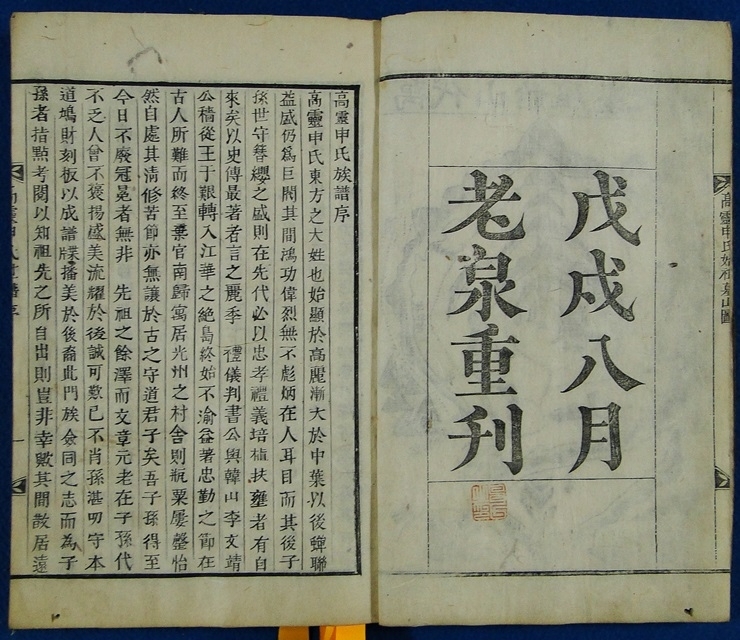 高靈申氏始祖墓山圖
戊戌八月
老泉重刊
高靈申氏族譜序
高靈申氏東方之大姓也始顯於高麗漸大於中葉以後蟬聯
益盛仍爲巨閥其間鴻功偉烈無不彪炳在人耳目而其後子
孫世守簪纓之盛則在先代必以忠孝禮義培植扶壅者有自
來矣以史傳最著者言之麗季 禮儀判書公與韓山李文靖
公穡從王于艱轉入江華之絶島終始不渝益著忠勤之節在
古人所難而終至棄官南歸寓居光州之村舍則瓶粟屢罄怡
然自處其淸修苦節亦無讓於古之守道君子矣吾子孫得至
今日不廢冠冕者無非 先祖之餘澤而文章元老在子孫代
不乏人曾不褒揚盛美流耀於後誠可歎已不肖孫湛叨守本
道鳩財刻板以成譜牒播美於後裔此門族僉同之志而為子
孫者指點考閱以知祖先之所自出則豈非幸歟其間散居遠